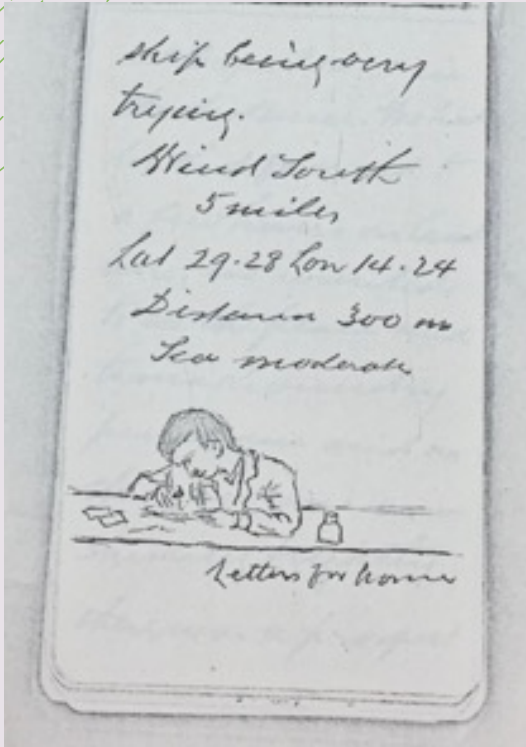 ship being very
trying.
Wind South
5 miles
Lat 29.28 Lon 14.24
Distance 300 m
Sea moderate
Letters for home